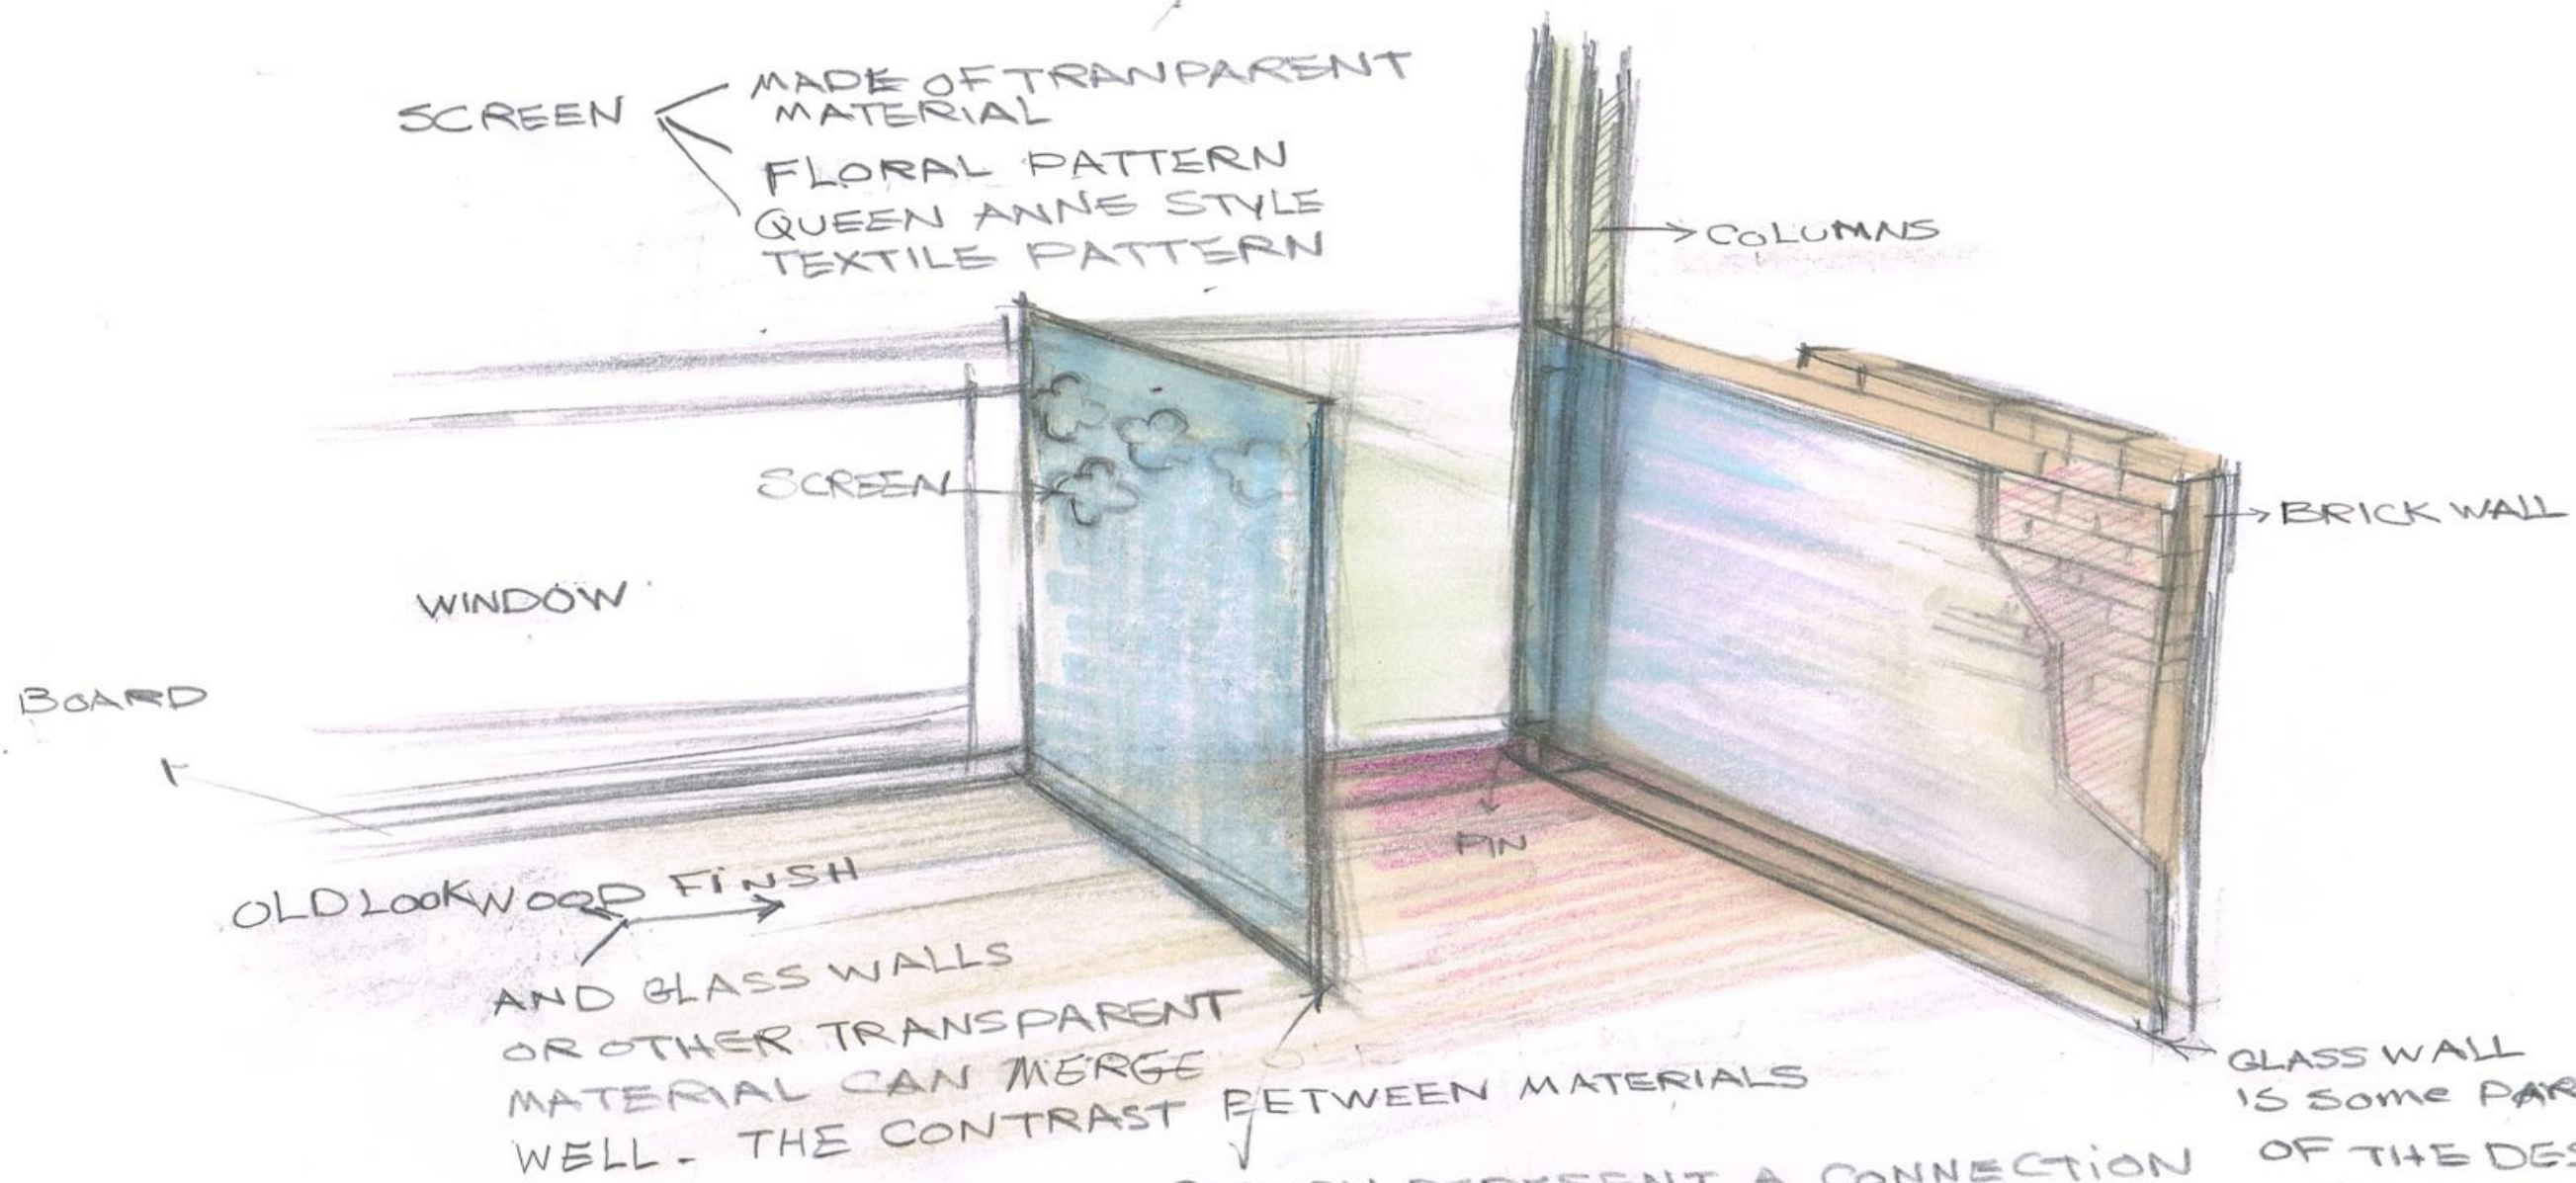 SCREEN
MADE OF TRANPARENT
MATERIAL
FLORAL PATTERN
QUEEN ANNE STYLE
TEXTILE PATTERN
COLUMNS
SCREEN
BRICK WALL
WINDOW
BOARD
PIN
OLD LOOK WOOD FINSH
AND GLASS WALLS
OR OTHER TRANSPARENT
MATERIAL CAN MERGE
WELL. THE CONTRAST BETWEEN MATERIALS
GLASS WALL
IS SOME PAR
OF THE DES
A CONNECTION